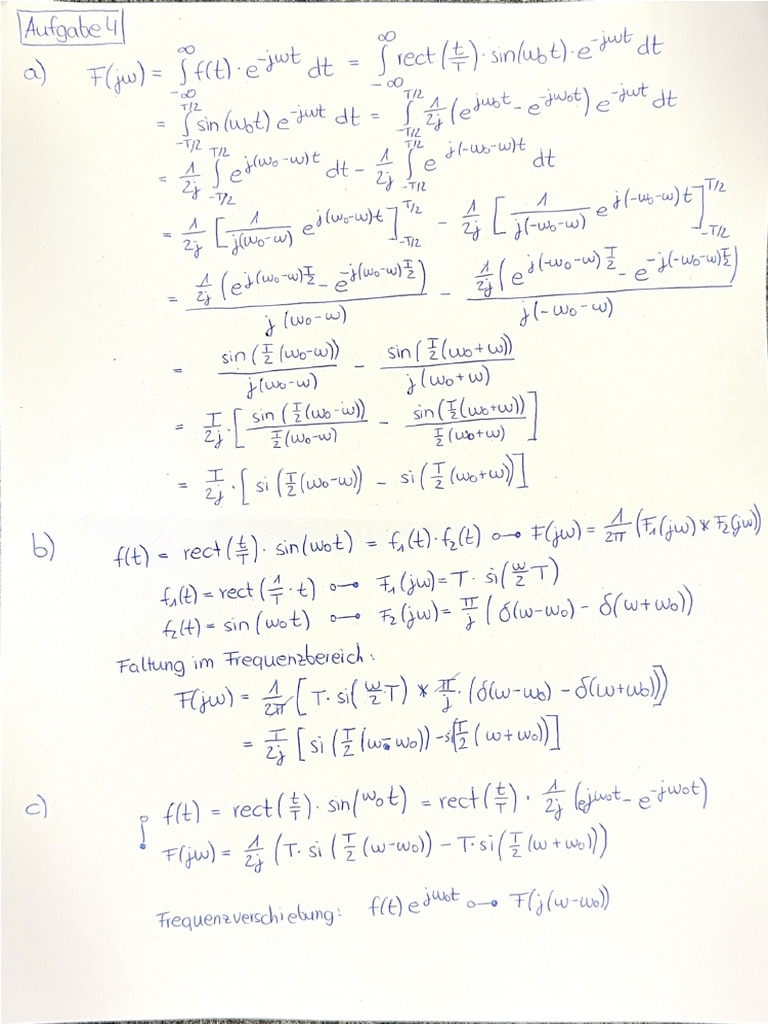 Aufgabe 4
a) F(jω) = ∫_{-∞}^{∞} f(t) · e^{-jωt} dt = ∫_{-∞}^{∞} rect(t/T) · sin(ω₀t) · e^{-jωt} dt
= ∫_{-T/2}^{T/2} sin(ω₀t) e^{-jωt} dt = ∫_{-T/2}^{T/2} 1/2j (e^{jω₀t} - e^{-jω₀t}) e^{-jωt} dt
= 1/2j ∫_{-T/2}^{T/2} e^{j(ω₀-ω)t} dt - 1/2j ∫_{-T/2}^{T/2} e^{j(-ω₀-ω)t} dt
= 1/2j [1/(j(ω₀-ω)) e^{j(ω₀-ω)t}]_{-T/2}^{T/2} - 1/2j [1/(j(-ω₀-ω)) e^{j(-ω₀-ω)t}]_{-T/2}^{T/2}
= (1/2j (e^{j(ω₀-ω)T/2} - e^{-j(ω₀-ω)T/2}))/(j(ω₀-ω)) - (1/2j (e^{j(-ω₀-ω)T/2} - e^{-j(-ω₀-ω)T/2}))/(j(-ω₀-ω))
= sin(T/2(ω₀-ω))/(j(ω₀-ω)) - sin(T/2(ω₀+ω))/(j(ω₀+ω))
= T/2j · [sin(T/2(ω₀-ω))/(T/2(ω₀-ω)) - sin(T/2(ω₀+ω))/(T/2(ω₀+ω))]
= T/2j · [si(T/2(ω₀-ω)) - si(T/2(ω₀+ω))]
b) f(t) = rect(t/T) · sin(ω₀t) = f₁(t) · f₂(t) ○—● F(jω) = 1/2π (F₁(jω) * F₂(jω))
f₁(t) = rect(1/T · t) ○—● F₁(jω) = T · si(ω/2 T)
f₂(t) = sin(ω₀t) ○—● F₂(jω) = π/j (δ(ω-ω₀) - δ(ω+ω₀))
Faltung im Frequenzbereich:
F(jω) = 1/2π [T · si(ω/2 · T) * π/j · (δ(ω-ω₀) - δ(ω+ω₀))]
= T/2j [si(T/2(ω-ω₀)) - si(T/2(ω+ω₀))]
c) f(t) = rect(t/T) · sin(ω₀t) = rect(t/T) · 1/2j (e^{jω₀t} - e^{-jω₀t})
F(jω) = 1/2j (T · si(T/2(ω-ω₀)) - T · si(T/2(ω+ω₀)))
Frequenzverschiebung: f(t) e^{jω₀t} ○—● F(j(ω-ω₀))